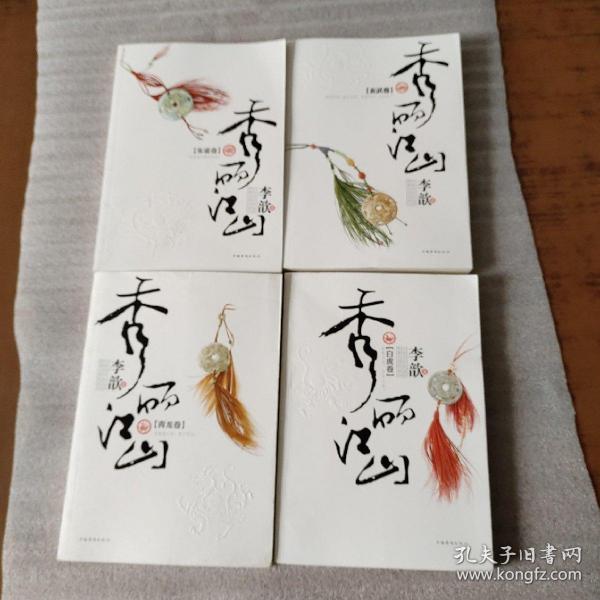 秀丽江山
【朱雀卷】
李歆
秀丽江山
【玄武卷】
李歆
秀丽江山
李歆
【青龙卷】
秀丽江山
【白虎卷】
李歆
孔夫子旧书网
www.kongfz.com